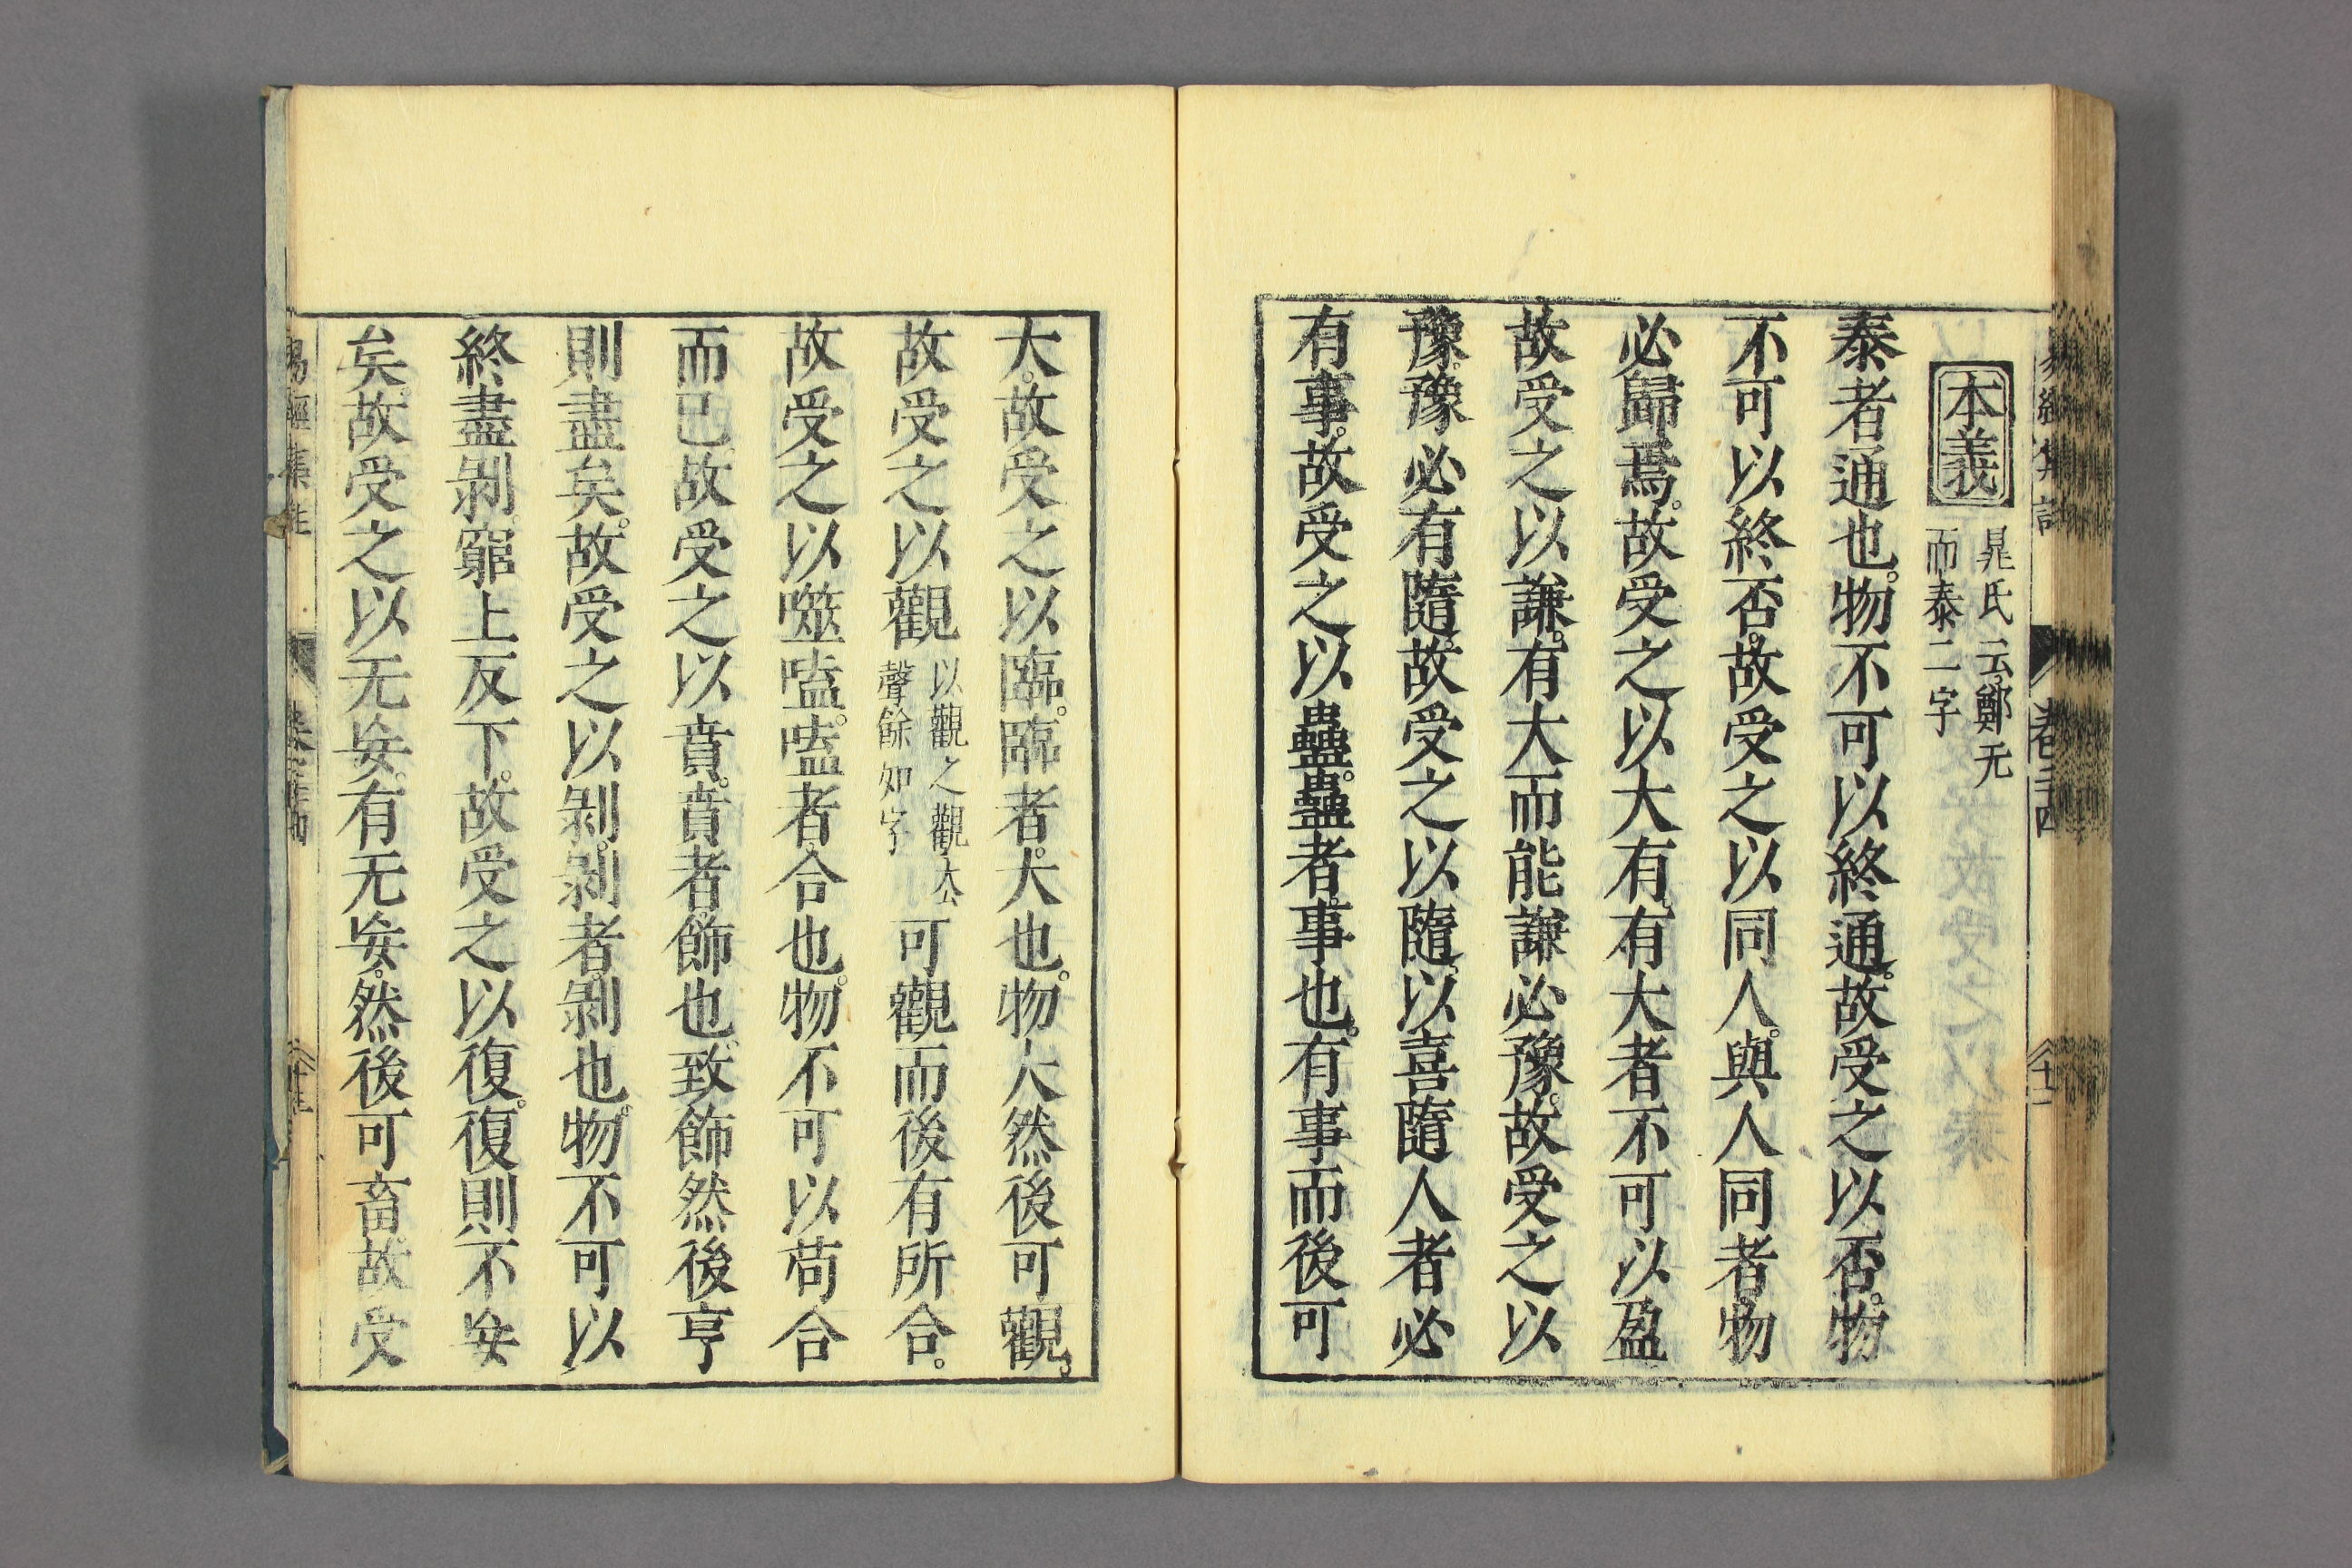 本義
晁氏云鄭无
而泰二字
泰者通也。物不可以終通。故受之以否。物
不可以終否。故受之以同人。與人同者。物
必歸焉。故受之以大有。有大者不可以盈
故受之以謙。有大而能謙必豫。故受之以
豫。豫必有隨。故受之以隨。以喜隨人者必
有事。故受之以蠱。蠱者。事也。有事而後可
大。故受之以臨。臨者。大也。物大然後可觀。
故受之以觀
以觀之觀去
聲餘如字
可觀而後有所合。
故受之以噬嗑。嗑者。合也。物不可以苟合
而已。故受之以賁。賁者飾也。致飾然後亨
則盡矣。故受之以剝。剝者。剝也。物不可以
終盡剝。窮上反下。故受之以復。復則不妄
矣。故受之以无妄。有无妄。然後可畜故受
易經集註
卷二十四